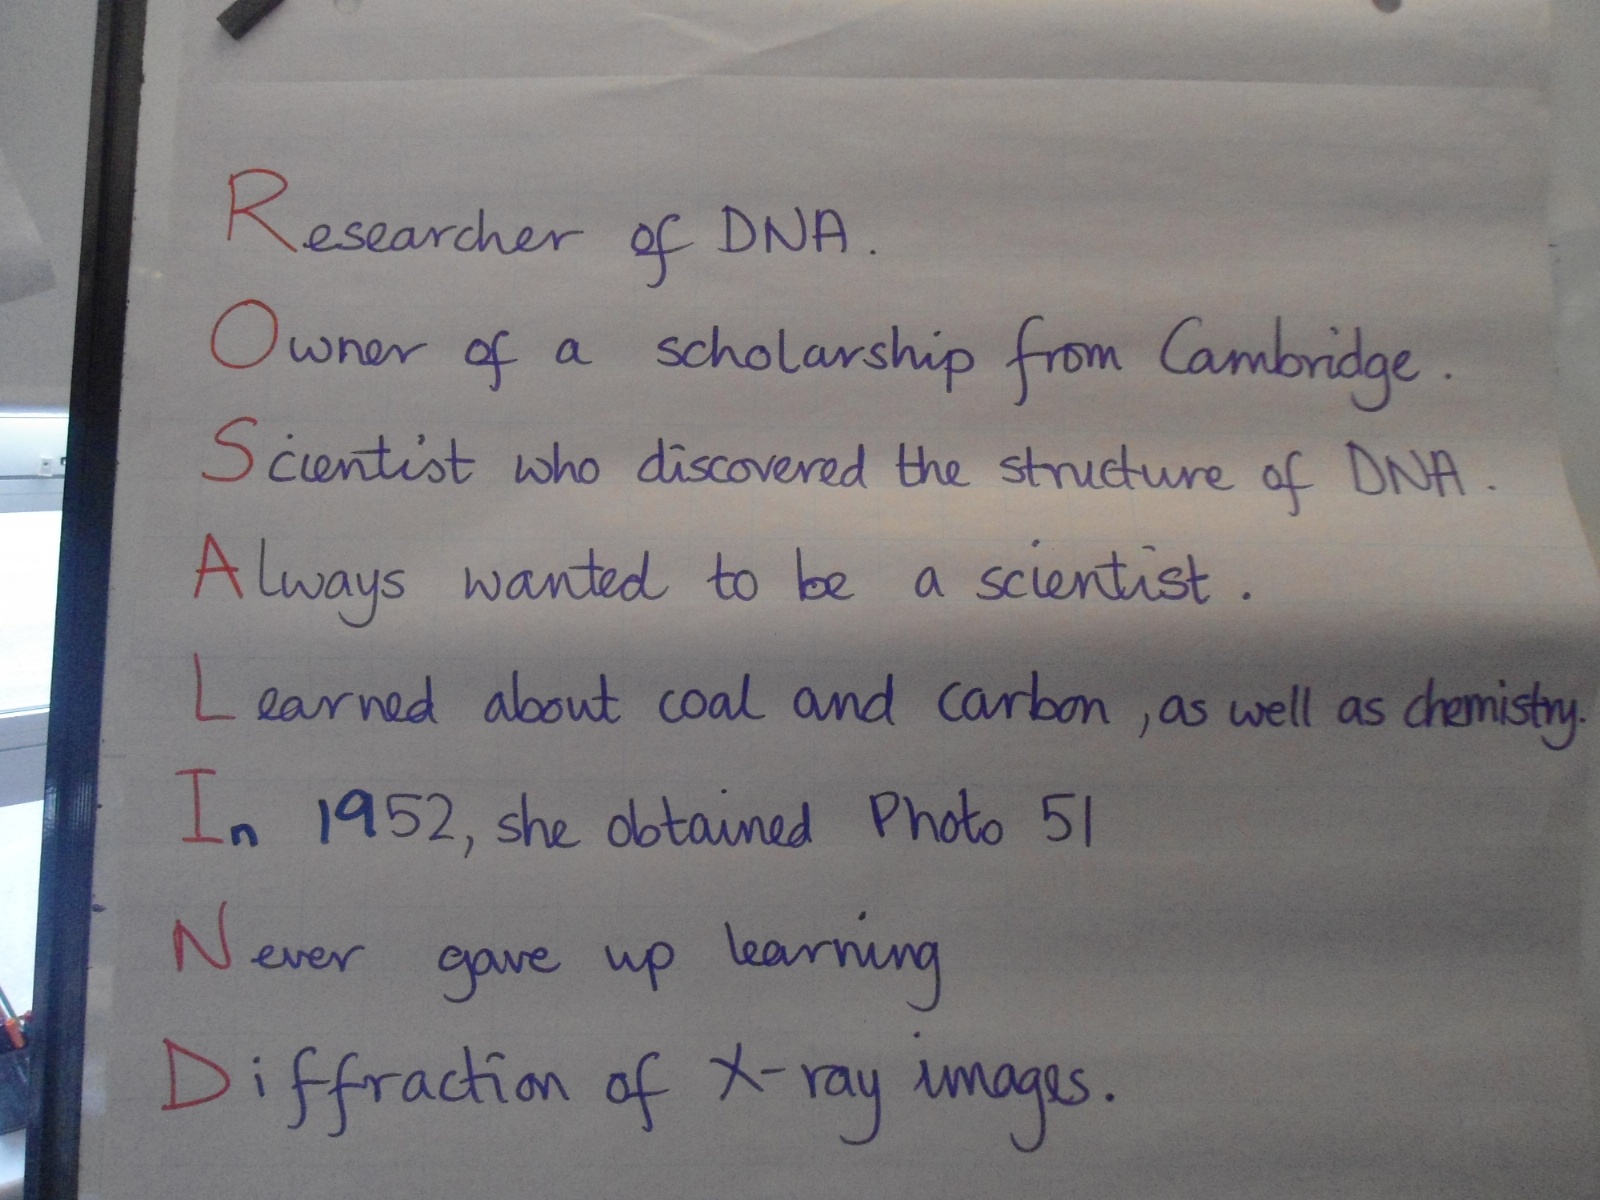 Researcher of DNA.
Owner of a scholarship from Cambridge.
Scientist who discovered the structure of DNA.
Always wanted to be a scientist.
Learned about coal and carbon, as well as chemistry.
In 1952, she obtained Photo 51
Never gave up learning
Diffraction of X-ray images.